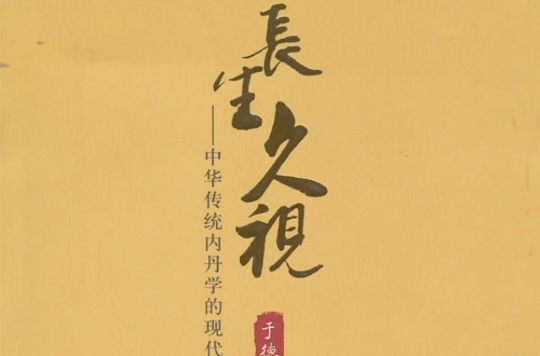 長生久視
——中华传统内丹学的现代
于德